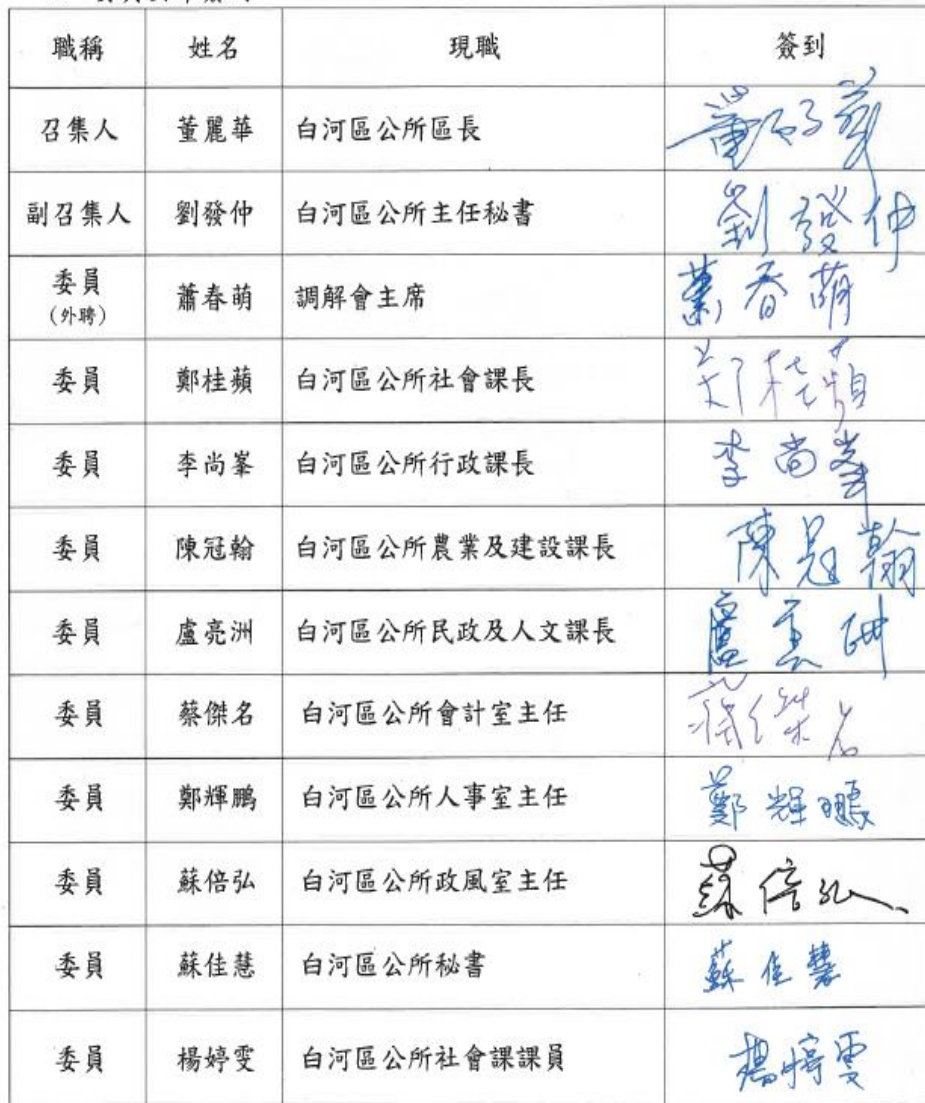 職稱 姓名 現職 簽到
召集人 董麗華 白河區公所區長
副召集人 劉發仲 白河區公所主任秘書 劉發仲
委員
(外聘) 蕭春萌 調解會主席 春萌
委員 鄭桂蘋 白河區公所社會課長 鄭桂蘋
委員 李尚峯 白河區公所行政課長 李尚峯
委員 陳冠翰 白河區公所農業及建設課長 陳冠翰
委員 盧亮洲 白河區公所民政及人文課長 盧亮洲
委員 蔡傑名 白河區公所會計室主任 蔡傑名
委員 鄭輝鵬 白河區公所人事室主任 鄭輝鵬
委員 蘇倍弘 白河區公所政風室主任 蘇倍弘
委員 蘇佳慧 白河區公所秘書 蘇佳慧
委員 楊婷雯 白河區公所社會課課員 楊婷雯